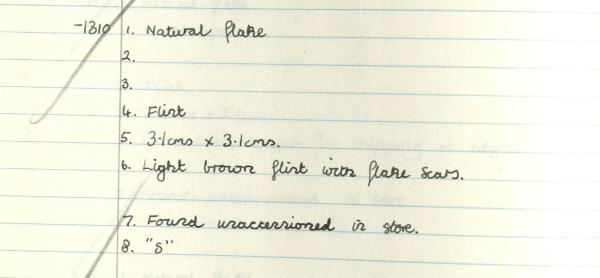 -1310 1. Natural flake
2.
3.
4. Flint
5. 3.1cms x 3.1cms.
6. Light brown flint with flake scars.
7. Found unaccessioned in store.
8. "S"